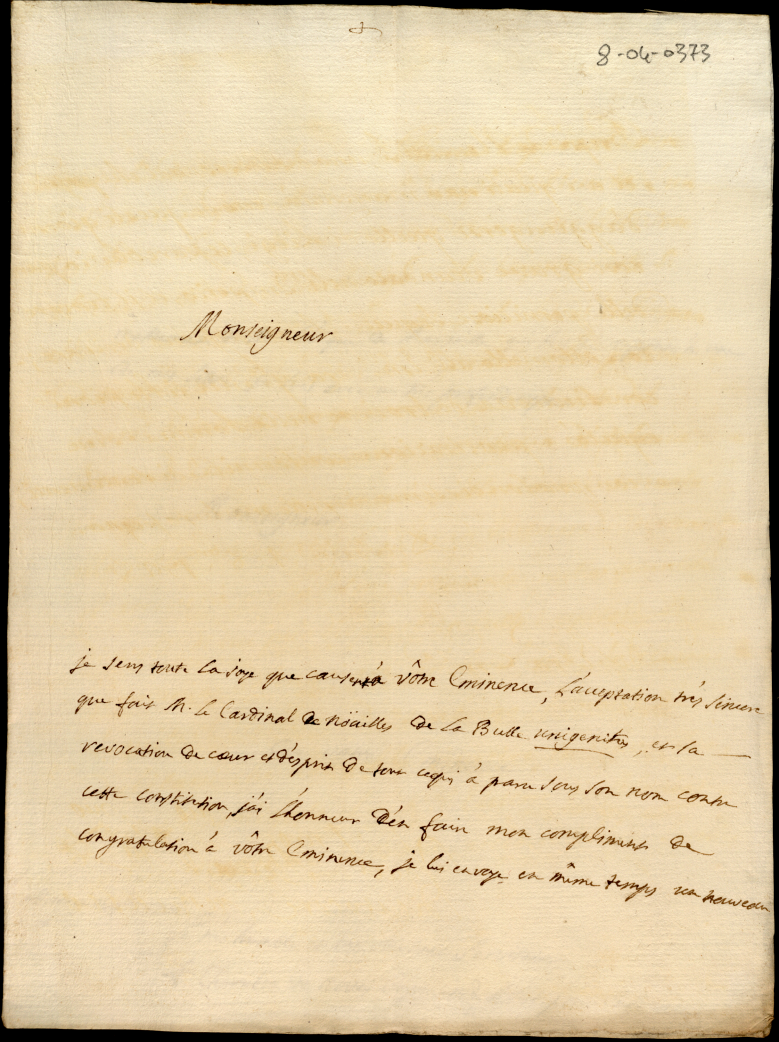 8-04-0373
Monseigneur
je sens toute la joye que causera à vôtre Eminence, L'aceptation trés sincere
que fait M. le Cardinal de Nöailles de la Bulle unigenitus, et la
revocation de cœur et d'esprit de tout cequi à paru sous son nom contre
cette constitution, j'ai L'honneur d'en faire mon compliment de
congratulation à vôtre Eminence, je lui envoye en même temps un nouveau